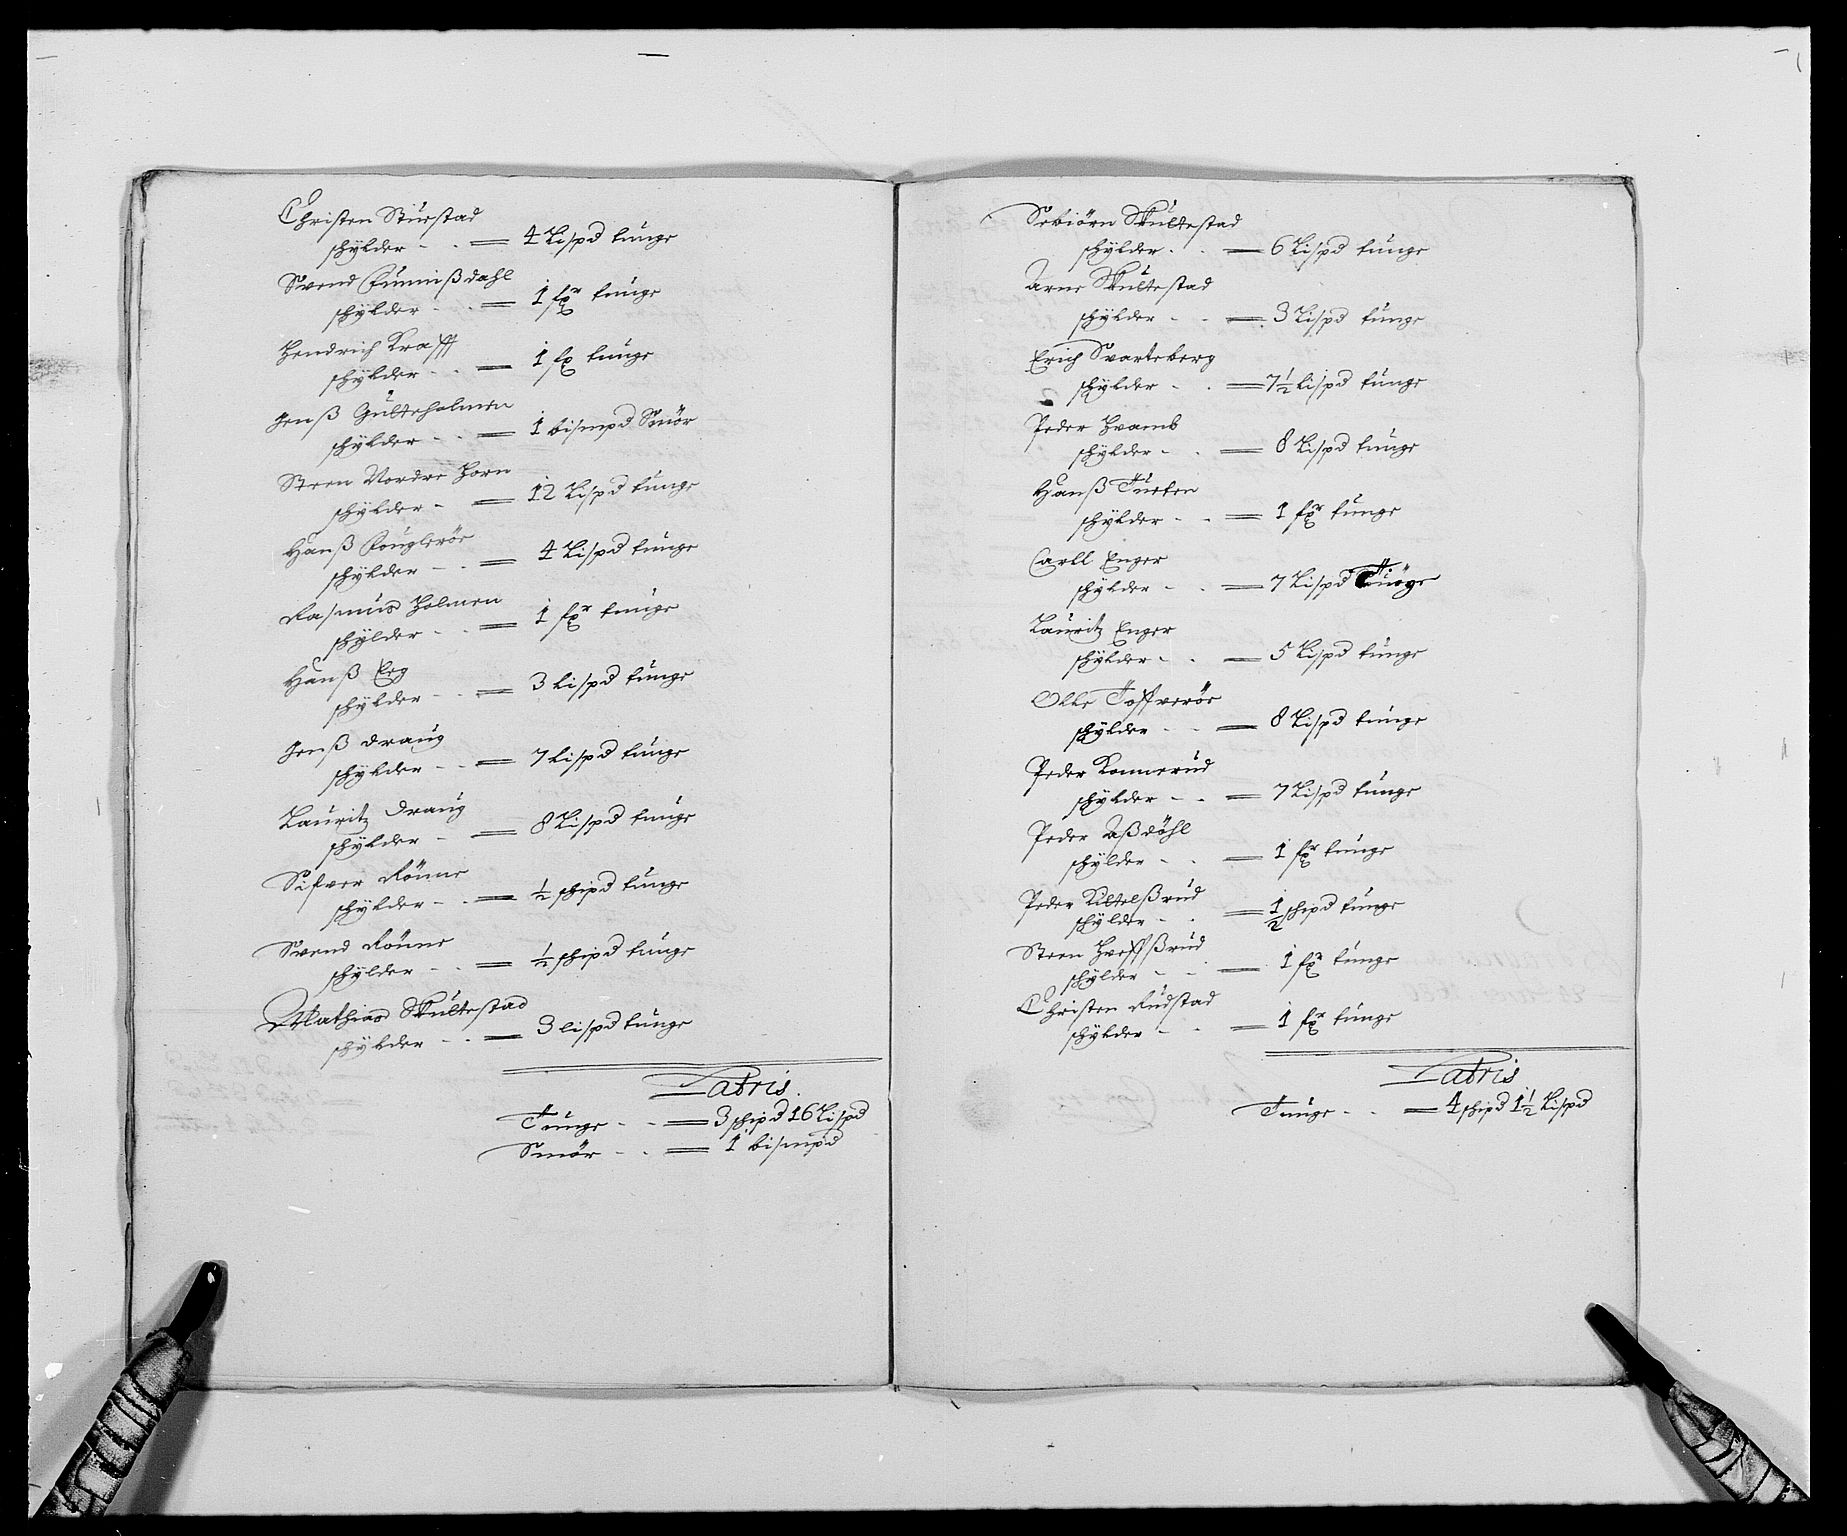 Christen Stuestad
schylder - - = 4 Lispd tunge
Svend Gunnißdahl
schylder - - = 1 fxr tunge
Hendrich Krafft
schylder - - = 1 fx tunge
Jenß Gulteholmen
schylder - - = 1 bismpd Smör
Steen Nordre Horn
schylder - = 12 Lispd tunge
Hanß Kouglerör
schylder - - = 4 Lispd tunge
Rasmus Holmen
schylder - - = 1 fxr tunge
Hanß Eeg
schylder - - = 3 lispd tunge
Jenß Draug
schylder - - = 7 lispd tunge
Lauritz Draug
schylder - = 8 Lispd tunge
Sifver Rönne
schylder - - = ½ schipd tunge
Svend Rönne
schylder - - = ½ schipd tunge
Mathias Skultestad
schylder - - = 3 lispd tunge
Latris.
Tunge - - = 3 schipd 16 Lispd
Smör - - = 1 bismpd
Sebiörn Skultestad
schylder - - = 6 Lispd tunge
Arne Skultestad
schylder - - = 3 Lispd tunge
Erich Svarteberg
schylder - - = 7½ lispd tunge
Peder Hvamb
schylder - - = 8 Lispd tunge
Hanß Tueten
schylder - - = 1 fxr tunge
Carll Enger
schylder - - = 7 Lispd Tunge
Lauritz Enger
schylder - - = 5 Lispd tunge
Olle Toffverör
schylder - - = 8 Lispd tunge
Peder Konnerud
schylder - - = 7 Lispd tunge
Peder Aßdöhl
schylder - - = 1 fxr tunge
Peder Kittelßrud
schylder - - = ½ schipd tunge
Steen Hveffßrud
schylder - - = 1 fxr tunge
Christen Rudstad
schylder - - = 1 fxr tunge
Latris
Tunge - - = 4 schipd 1½ Lispd